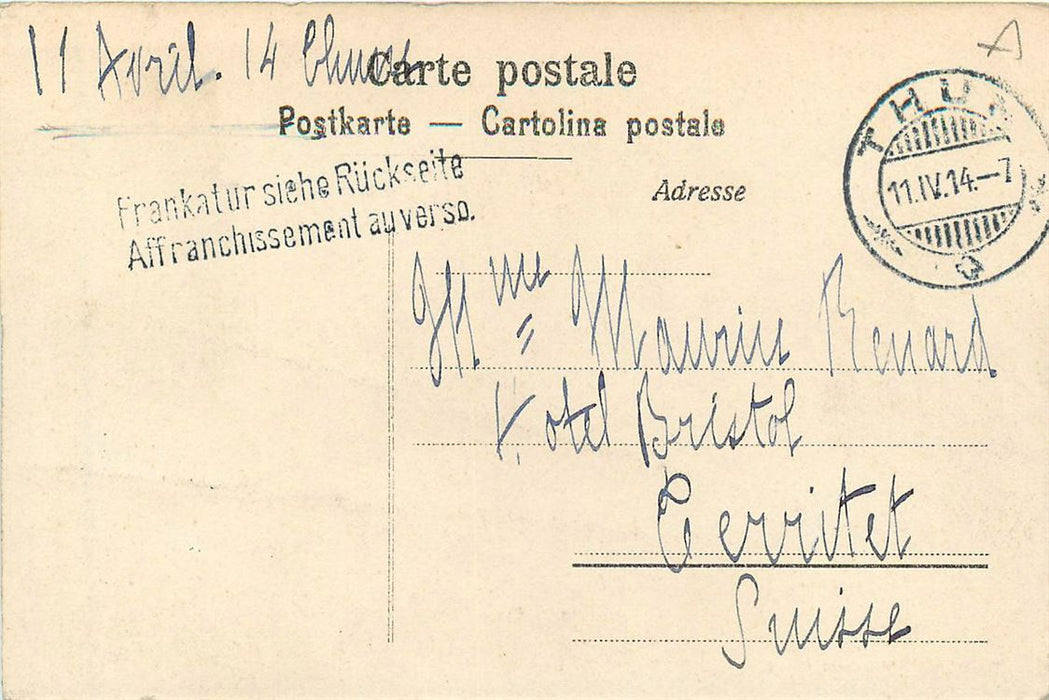 11 Avril. 14
Carte postale
Postkarte — Cartolina postale
Frankatur siehe Rückseite
Affranchissement au verso.
Adresse
THUN
11.IV.14.–7
Mme Maurice Renard
Hotel Bristol
Territet
Suisse